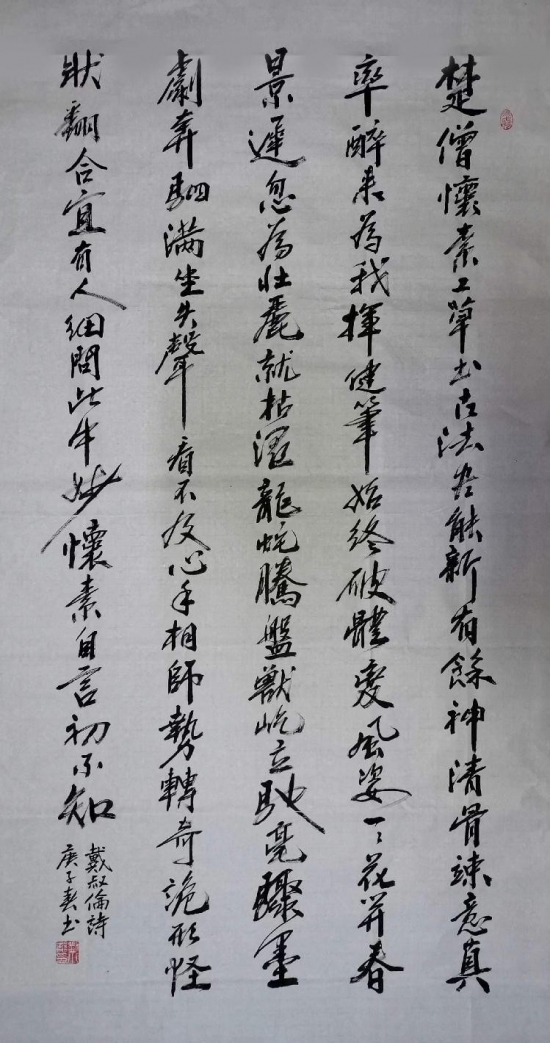 楚僧懷素工草书古法尽能新有餘神清骨竦意真
率醉来為我揮健筆始終破體變風姿一々花开春
景遲忽為壮麗就枯澀龍蛇騰盤獸屹立馳毫驟墨
劇奔駟满坐失聲看不及心手相師勢轉奇詭形怪
狀翻合宜有人細問此中妙懷素自言初不知
戴叔倫詩
庚子春书